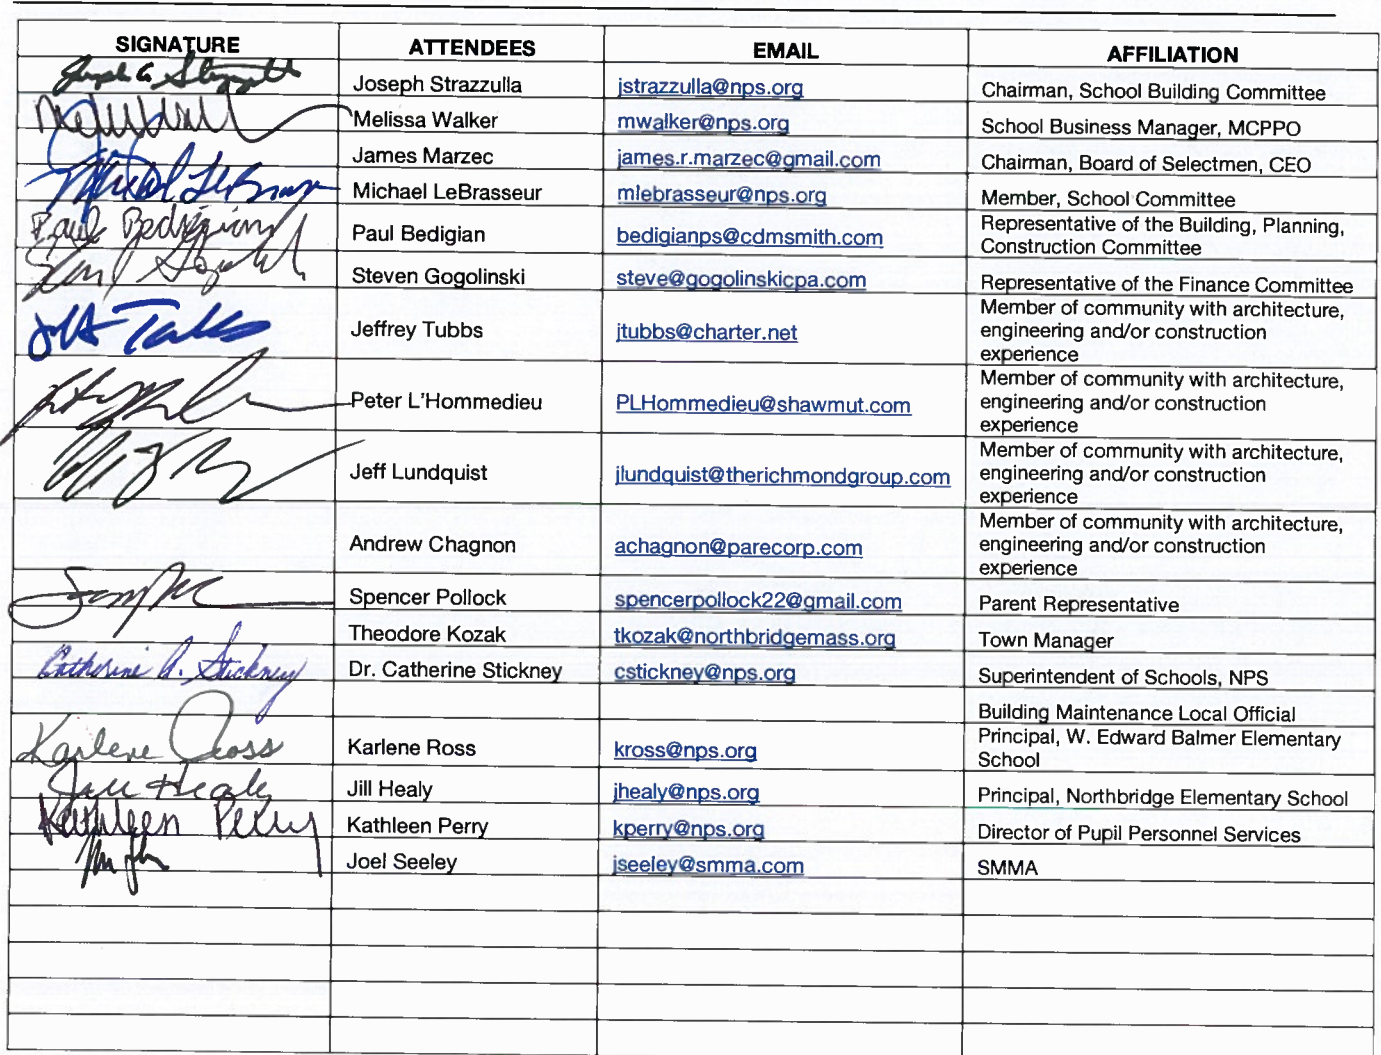 SIGNATURE ATTENDEES EMAIL AFFILIATION
Joseph Strazzulla jstrazzulla@nps.org Chairman, School Building Committee
Melissa Walker mwalker@nps.org School Business Manager, MCPPO
James Marzec james.r.marzec@gmail.com Chairman, Board of Selectmen, CEO
Michael LeBrasseur Michael LeBrasseur mlebrasseur@nps.org Member, School Committee
Paul Bedigian Paul Bedigian bedigianps@cdmsmith.com Representative of the Building, Planning,
Construction Committee
Steven Gogolinski steve@gogolinskicpa.com Representative of the Finance Committee
Jeff Tubbs Jeffrey Tubbs jtubbs@charter.net Member of community with architecture,
engineering and/or construction
experience
Peter L'Hommedieu PLHommedieu@shawmut.com Member of community with architecture,
engineering and/or construction
experience
Jeff Lundquist jlundquist@therichmondgroup.com Member of community with architecture,
engineering and/or construction
experience
Andrew Chagnon achagnon@parecorp.com Member of community with architecture,
engineering and/or construction
experience
Spencer Pollock spencerpollock22@gmail.com Parent Representative
Theodore Kozak tkozak@northbridgemass.org Town Manager
Catherine A. Stickney Dr. Catherine Stickney cstickney@nps.org Superintendent of Schools, NPS
Building Maintenance Local Official
Karlene Ross Karlene Ross kross@nps.org Principal, W. Edward Balmer Elementary
School
Jill Healy Jill Healy jhealy@nps.org Principal, Northbridge Elementary School
Kathleen Perry Kathleen Perry kperry@nps.org Director of Pupil Personnel Services
Joel Seeley jseeley@smma.com SMMA